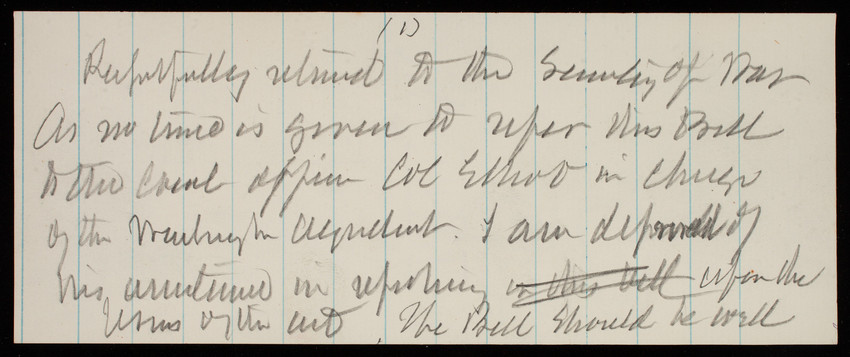 (1)
Respectfully returned to the Secretary of War
As no time is given to refer this Bill
to the local officer Col Elliot in charge
of the Washington Aqueduct. I am deprived of
his assistance in reporting in this bill upon the
terms of the act. The Bill should be well